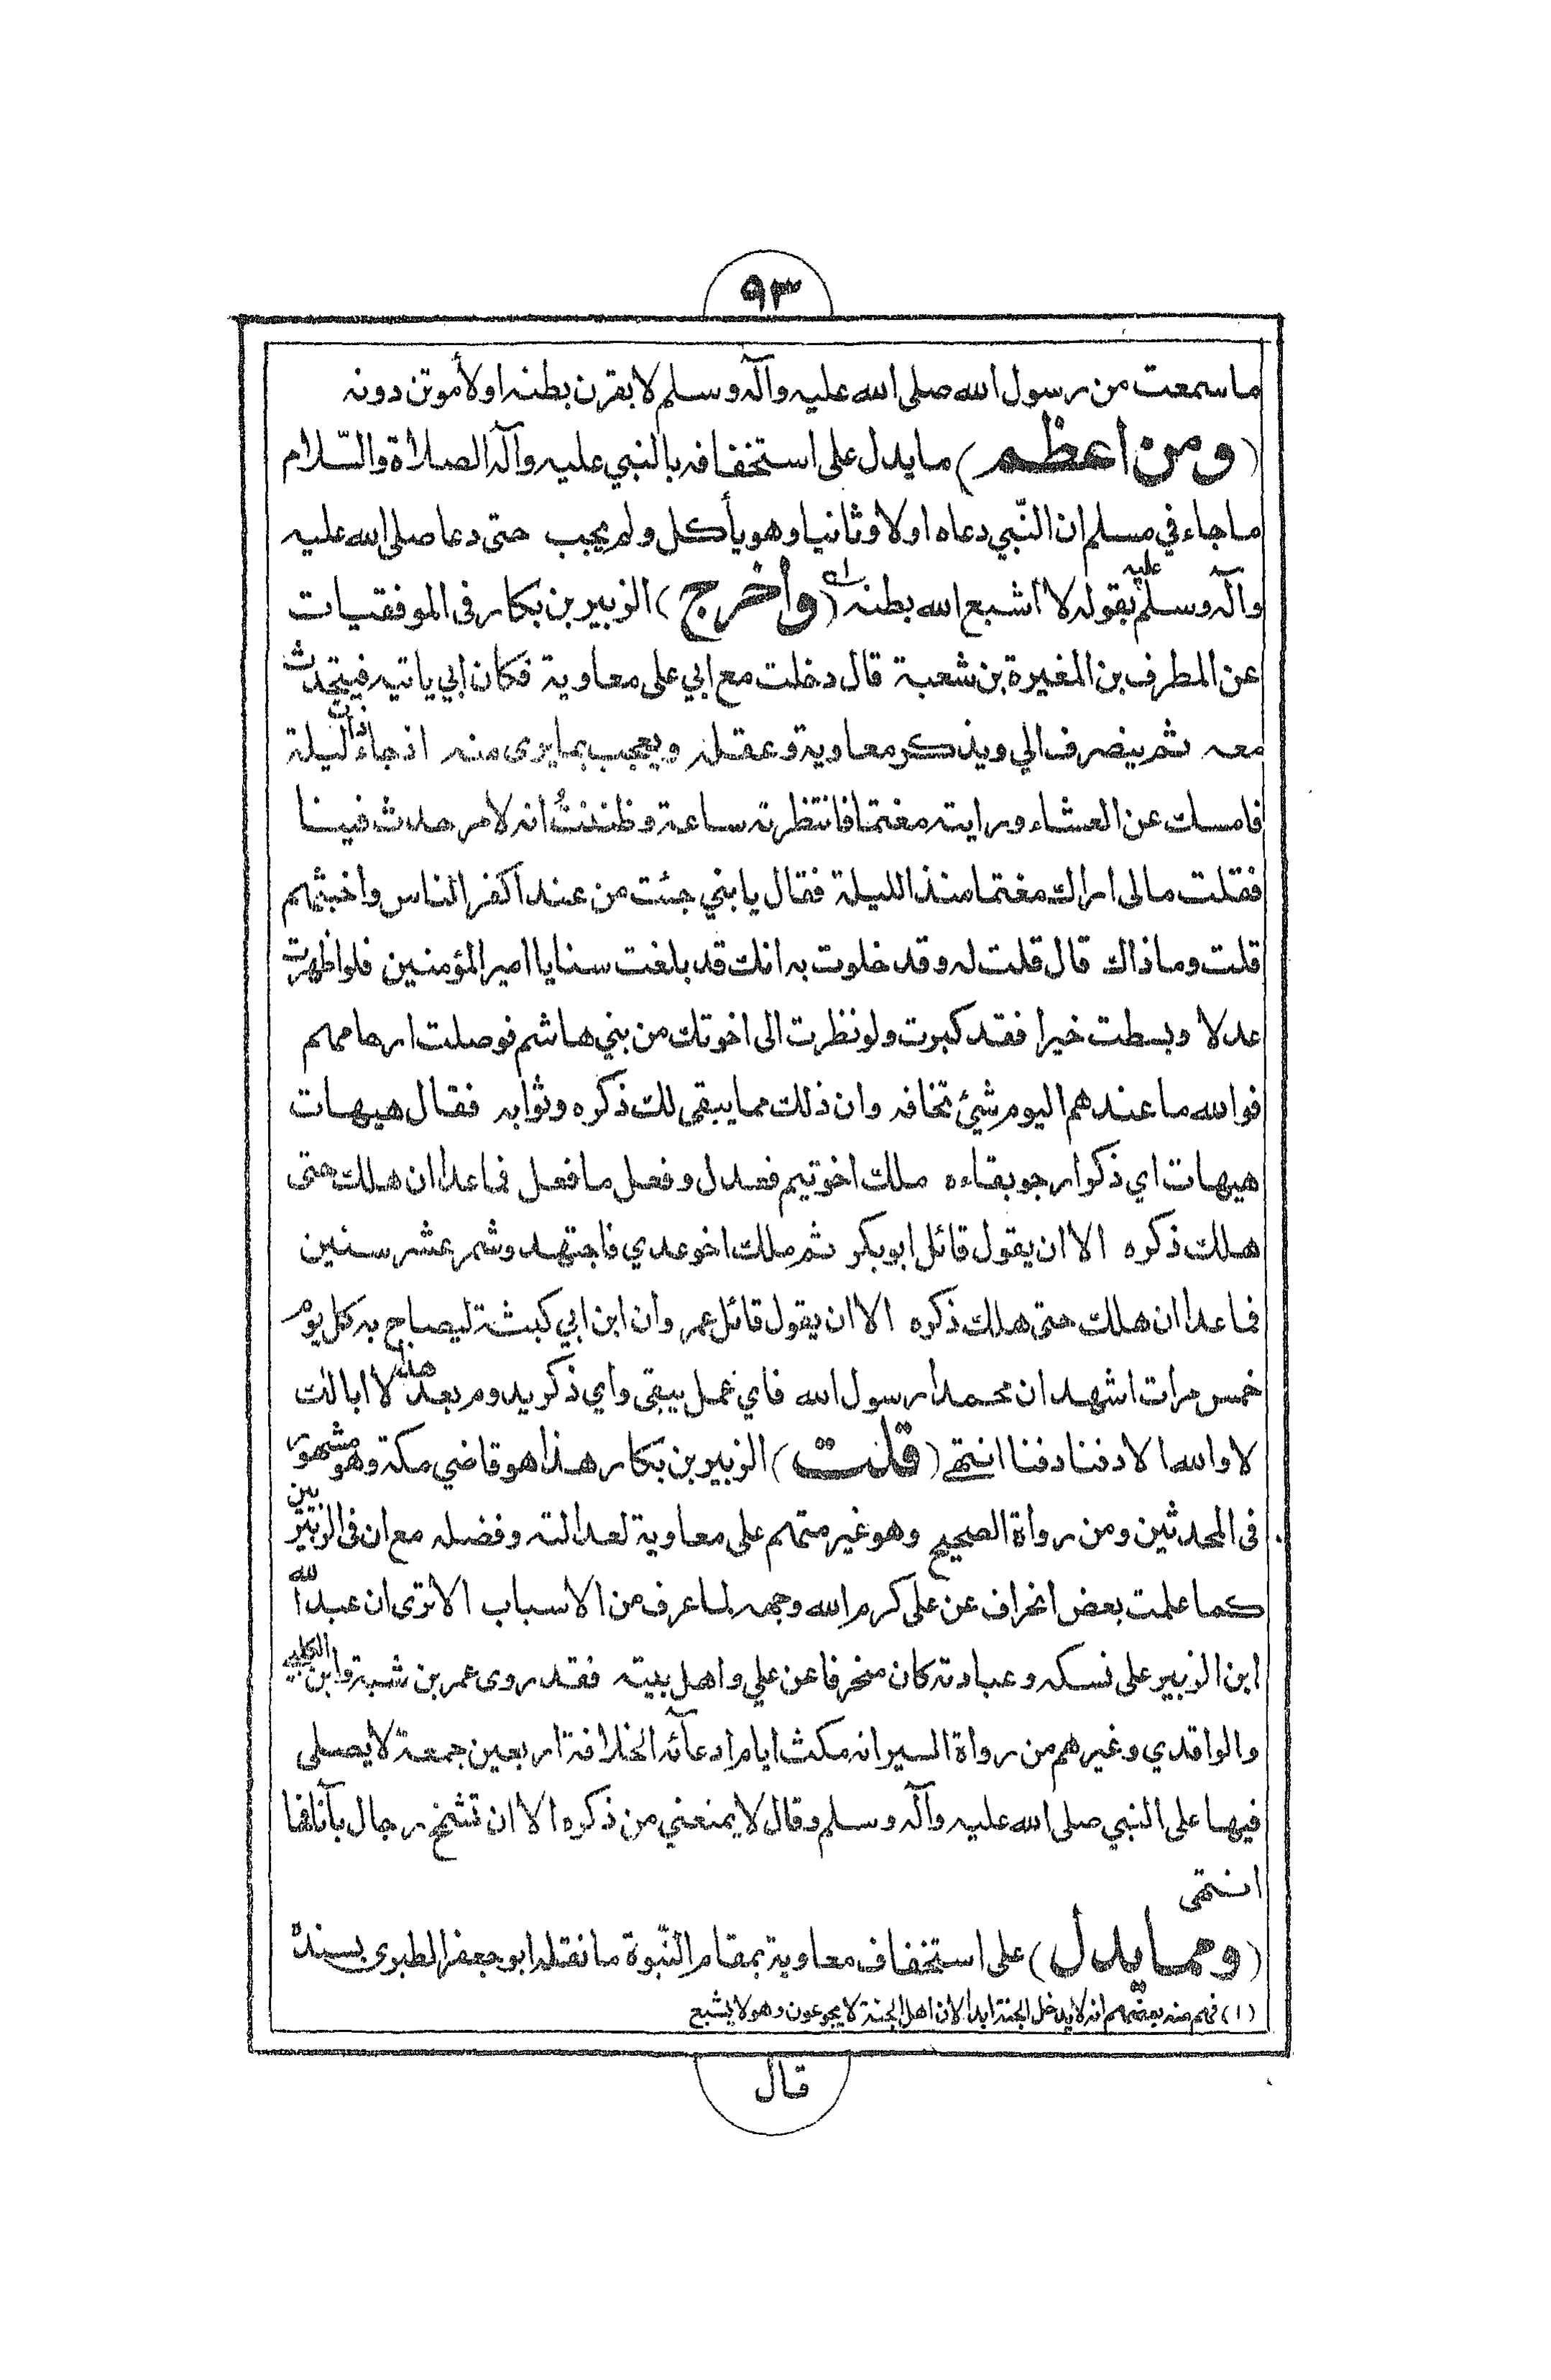 ٩٣
ما سمعت من رسول الله صلى الله عليه وآله وسلم لابقرن بطنه اولأموتن دونه
(ومن اعظم) ما يدل على استخفافه بالنبي عليه وآله الصلاة والسّلام
ما جاء في مسلم ان النّبي دعاه اولا وثانيا وهو يأكل ولم يجب حتى دعا صلى الله عليه
وآله وسلم عليه بقوله لا اشبع الله بطنه (١) (وأخرج) الزبير بن بكار فى الموفقيات
عن المطرف بن المغيرة بن شعبة قال دخلت مع ابي على معاوية فكان ابي ياتيه فيتحدث
معه ثم ينصرف الي ويذكر معاوية وعقله ويعجب بما يرى منه اذ جاء ذات ليلة
فامسك عن العشاء ورايته مغتما فانتظرته ساعة وظننتُ انه لامر حدث فينا
فقلت مالى اراك مغتما منذ الليلة فقال يا بني جئت من عند اكفر الناس واخبثهم
قلت وما ذاك قال قلت له وقد خلوت به انك قد بلغت سنا يا امير المؤمنين فلو اظهرت
عدلا وبسطت خيرا فقد كبرت ولو نظرت الى اخوتك من بني هاشم فوصلت ارحامهم
فوالله ما عندهم اليوم شيئ تخافه وان ذلك مما يبقى لك ذكره وثوابه فقال هيهات
هيهات اي ذكر ارجو بقاءه ملك اخو تيم فعدل وفعل ما فعل فما عدا ان هلك حتى
هلك ذكره الا ان يقول قائل ابو بكر ثم ملك اخو عدي فاجتهد وشمر عشر سنين
فما عدا ان هلك حتى هلك ذكره الا ان يقول قائل عمر وان ابن ابي كبشة ليصاح به كل يوم
خمس مرات اشهد ان محمدا رسول الله فاي عمل يبقى واي ذكر يدوم بعد هذا لا ابا لك
لا والله الا دفنا دفنا انتهى (قلت) الزبير بن بكار هذا هو قاضي مكة وهو مشهور
فى المحدثين ومن رواة الصحيح وهو غير متهم على معاوية لعدالته وفضله مع ان فى الزبيريين
كما علمت بعض انحراف عن على كرم الله وجهه لما عرف من الاسباب الا ترى ان عبد الله
ابن الزبير على نسكه وعبادته كان منحرفا عن علي واهل بيته فقد روى عمر بن شبة وابن الكلبي
والواقدي وغيرهم من رواة السير انه مكث ايام ادعآئه الخلافة اربعين جمعة لا يصلى
فيها على النبي صلى الله عليه وآله وسلم وقال لا يمنعني من ذكره الا ان تشمخ رجال بآنافها
انتهى
(ومما يدل) على استخفاف معاوية بمقام النّبوة ما نقله ابو جعفر الطبرى بسنده
(١) فهم منه بعضهم انه لا يدخل الجنة ابدا لأن اهل الجنة لا يجوعون وهو لا يشبع
قال